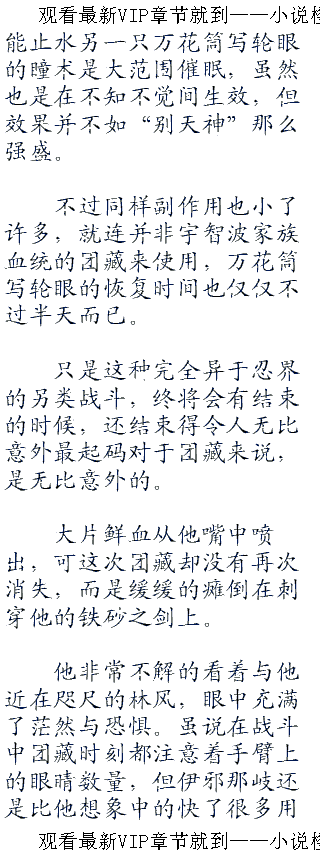 观看最新VIP章节就到——小说
能止水另一只万花筒写轮眼
的瞳术是大范围催眠，虽然
也是在不知不觉间生效，但
效果并不如“别天神”那么
强盛。
不过同样副作用也小了
许多，就连并非宇智波家族
血统的团藏来使用，万花筒
写轮眼的恢复时间也仅仅不
过半天而已。
只是这种完全异于忍界
的另类战斗，终将会有结束
的时候，还结束得令人无比
意外最起码对于团藏来说，
是无比意外的。
大片鲜血从他嘴中喷
出，可这次团藏却没有再次
消失，而是缓缓的瘫倒在刺
穿他的铁砂之剑上。
他非常不解的看着与他
近在咫尺的林风，眼中充满
了茫然与恐惧。虽说在战斗
中团藏时刻都注意着手臂上
的眼睛数量，但伊邪那岐还
是比他想象中的快了很多用
观看最新VIP章节就到——小说